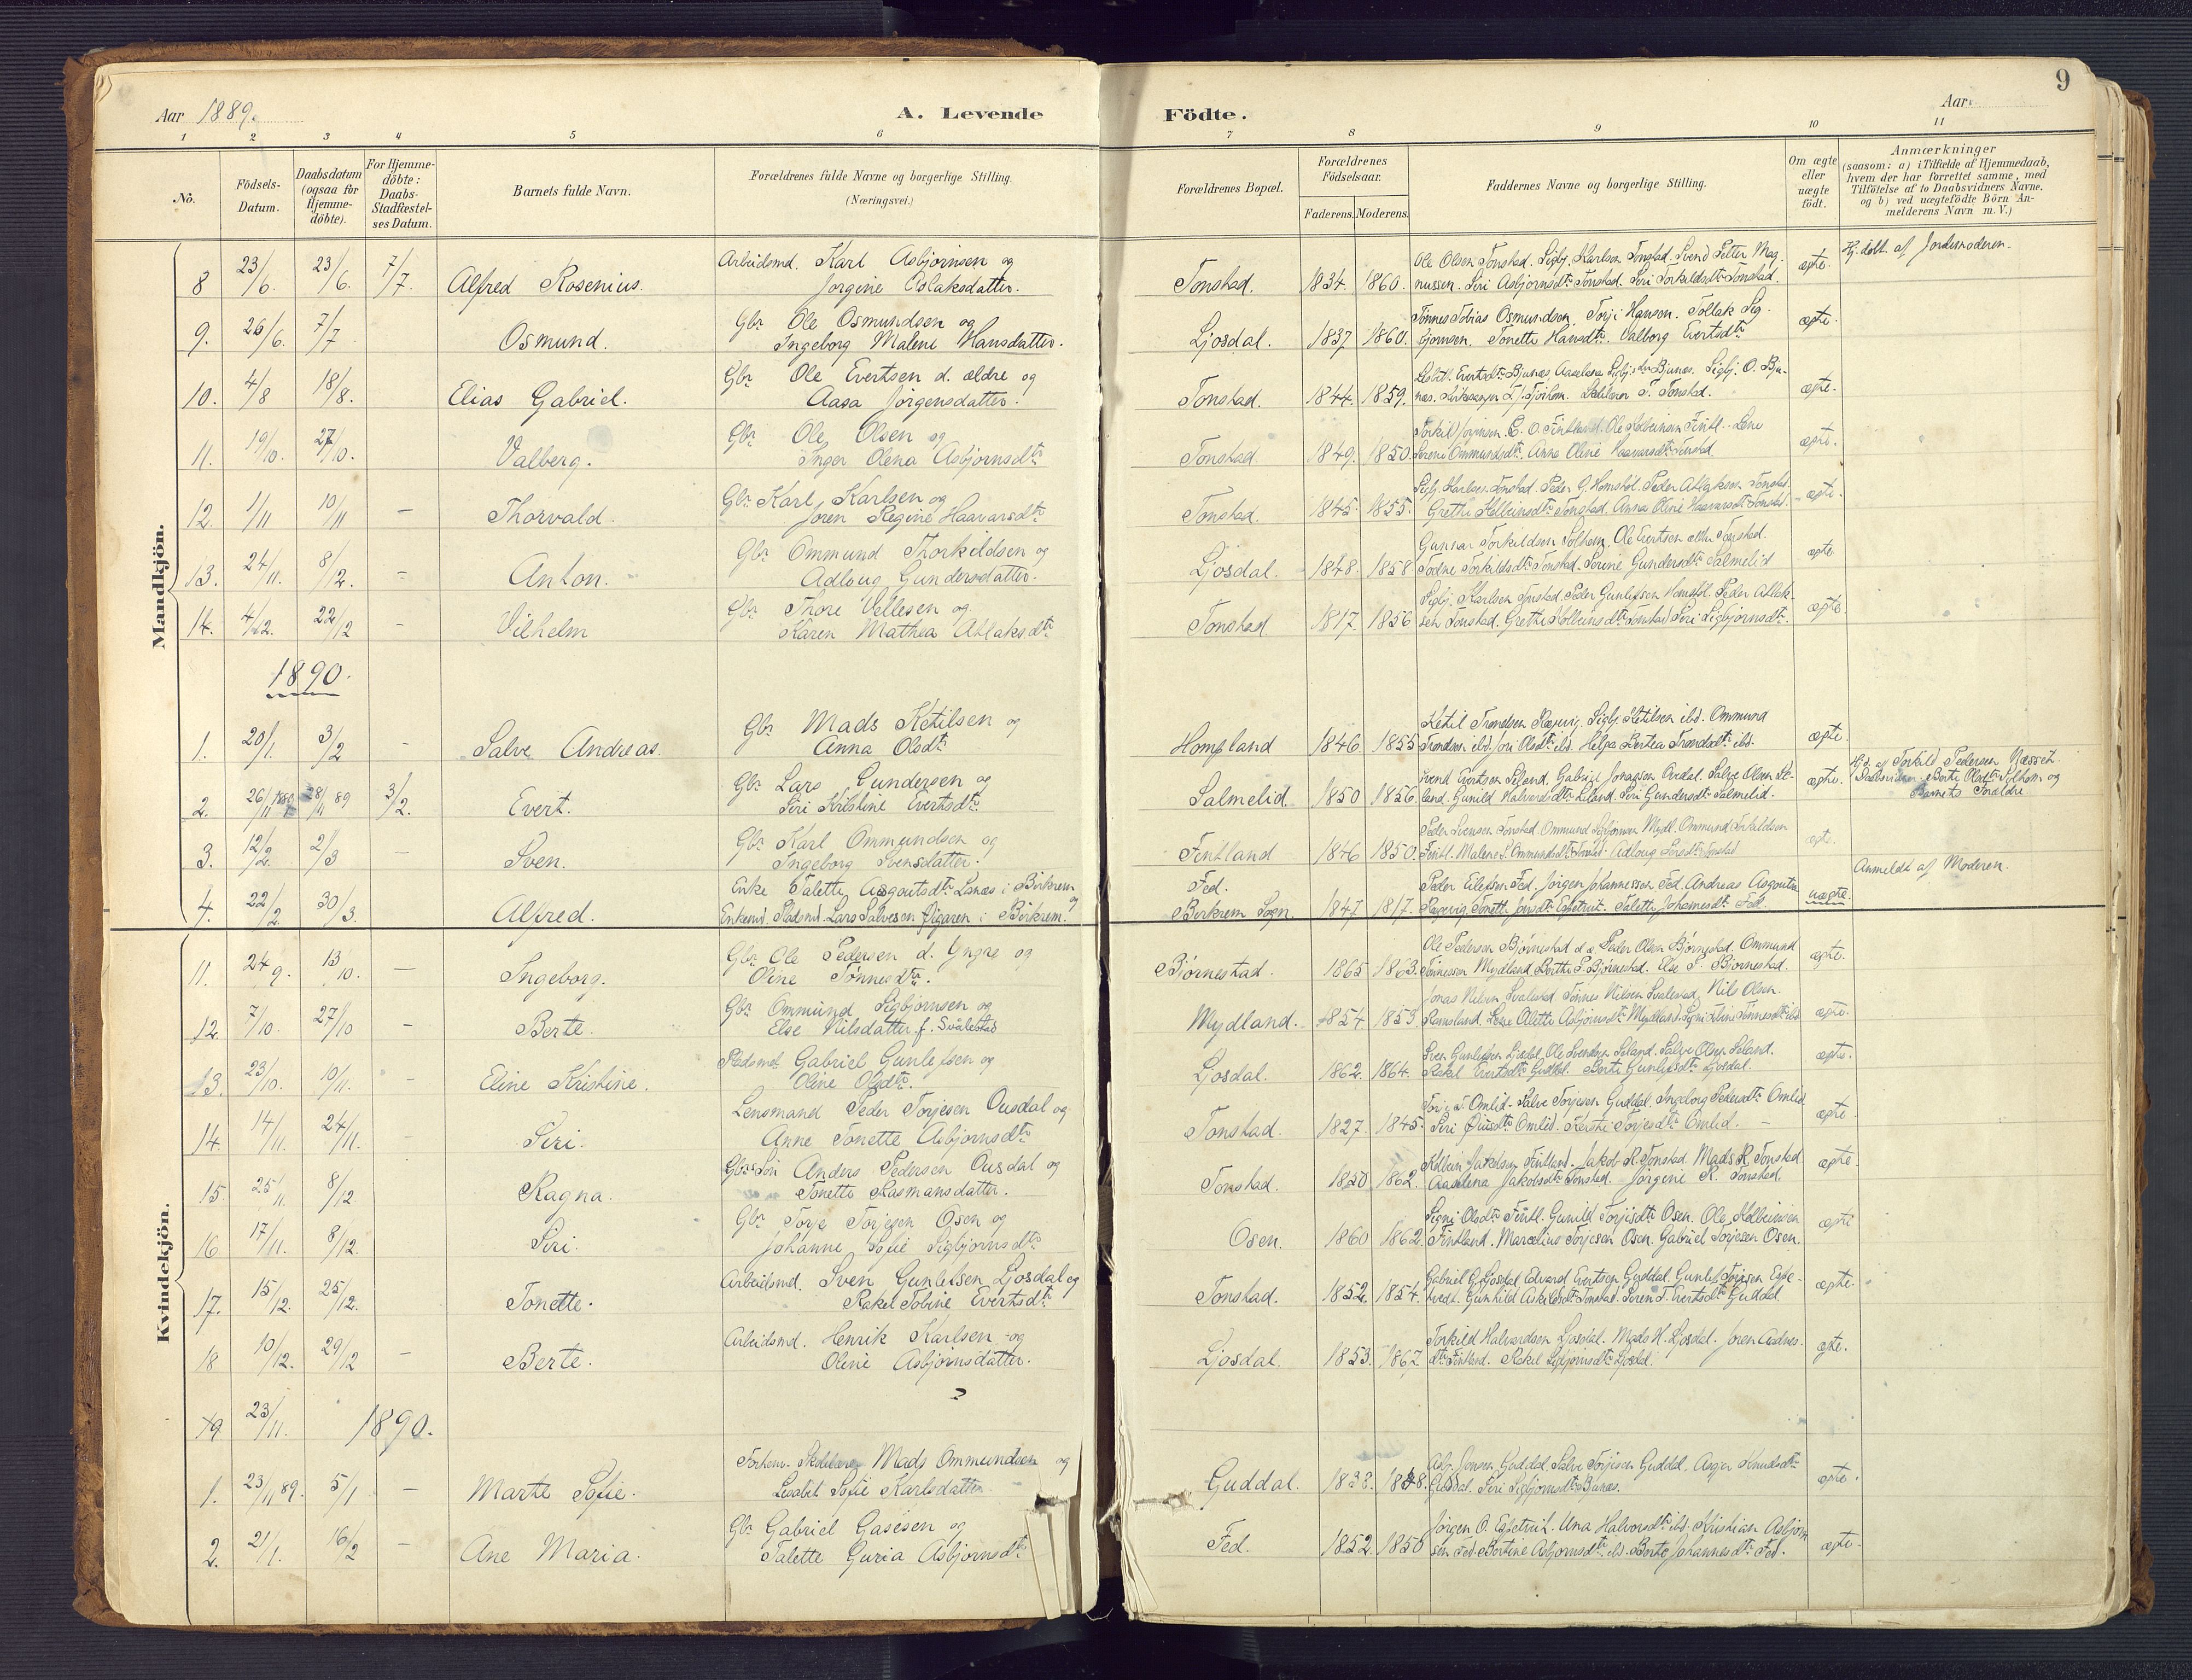 9
Aar 1889. A. Levende Födte. Aar
1 2 3 4 5 6 7 8 9 10 11
No. Födsels-Datum. Daabsdatum (ogsaa for Hjemme-döbte). For Hjemme-döbte: Daabs-Stadfæstel-ses Datum. Barnets fulde Navn. Forældrenes fulde Navne og borgerlige Stilling. (Næringsvei.) Forældrenes Bopæl. Forældrenes Födselsaar. Faderens. Moderens. Faddernes Navne og borgerlige Stilling. Om ægte eller uægte födt. Anmærkninger (saasom: a) i Tilfælde af Hjemmedaab, hvem der har forrettet samme, med Tilföielse af to Daabsvidners Navne. og b) ved uægtefödte Börn An-melderens Navn m. V.)
Mandkjön.
8 23/6. 23/6. 7/7. Alfred Rosenius. Arbeidsmd. Karl Asbjørnsen og
Jorgine Aslaksdatter. Tonstad. 1834. 1860. Ole Olsen Tonstad. Sigbj. Karlsen Tonstad. Svend Petter Mag-
nussen. Siri Asbjornsdtr Tonstad. Siri Torkildsdtr Tonstad. ægte. Hj. døbt af Jordemoderen.
9. 26/6. 7/7 Osmund. Gbr. Ole Osmundsen og
Ingeborg Malene Hansdatter. Ljosdal. 1837 1860. Tønnes Tobias Osmundsen. Torji Hansen. Tollak Sig-
bjornsen. Tonette Hansdtr. Valborg Evertsdtr ægte.
10. 4/8 18/8. Elias Gabriel. Gbr. Ole Evertsen d. ældre og
Aasa Jørgensdatter. Tonstad. 1844. 1859. Evertsdtr Bjunes, Sigbj. O. Bju-
nes. Kirkesanger Tjorhom. T. Tonstad. ægte.
11. 19/10. 27/10. Valberg. Gbr. Ole Olsen og
Inger Olena Asbjornsdtr Tonstad. 1849. 1850. Torkil Jørginsen. O. Fintland. Ole Fintl. Lene
Serene Ommundsdtr. Anna Oline Haavarsdtr Tonstad ægte.
12. 1/11 10/11 – Thorvald. Gbr. Karl Karlsen og
Joren Regine Haavarsdtr Tonstad. 1845. 1855. Sigbj. Karlsen Tonstad. Peder G. Homstøl. Peder Atlaksen Tonstad.
Grethe Tonstad. Anna Oline Haavarsdtr Tonstad. ægte.
13. 24/11. 8/12. – Anton. Gbr. Ommund Thorkildsen og
Adloug Gundersdatter. Ljosdal. 1848. 1858 Gunnar Torkildsen Solhom. Ole Evertsen Tonstad.
Todne Torkildsdtr Tonstad. Serine Gundersdtr Salmelid ægte
14. 4/12. 22/12 – Vilhelm Gbr. Thore Vellesen og
Karen Mathea Atlaksdtr Tonstad 1817. 1856 Sigbj. Karlsen Tonstad. Peder Gunlefsen Homstøl. Peder Atlak-
sen Tonstad. Grethe Tonstad Siri Sigbjørnsdtr. ægte
1890.
1. 20/1. 3/2 – Salve Andreas. Gbr. Mads Ketilsen og
Anna Olsdtr Hompland 1846. 1855 Ketil Trondsen Sigbj. Ketilsen ibd. Ommund
Trondsen ibd. Siri Olsdtr ibd. Helga Bertea Trondsdtr ibd. ægte.
2. 26/11 28/11 89 3/2. Evert. Gbr. Lars Gundersen og
Siri Kristine Evertsdtr. Salmelid. 1850 1856. Svend Evertsen Seland. Gabriel Jonassen Ovedal. Salve Olsen Se-
land. Gunild Halvorsdtr Seland. Siri Gundersdtr Salmelid. ægte. Hj. d. af Torkild Pedersen Næsset.
Berte Olsdtr Solhom og
Barnets Forældre
3. 12/2. 2/3 – Sven. Gbr. Karl Ommundsen og
Ingeborg Svensdatter. Fintland 1846 1850. Peder Svensen Tonstad. Ommund Sigbjornsen Mydl. Ommund Torkildsen
Fintl. Malene S. Ommundsdtr Tonstad. Adloug Tonstad ægte.
4. 22/2. 30/3. Alfred. Enke Talette Asgautsdtr Lonæs i Birkrem og
Enkemd. Pladsmd. Lars Salvesen Øigaren i Birkrem. Fed.
Birkrem Sogn. 1847 1817. Peder Eilefsen Fed. Jørgen Johannessen Fed. Andreas Asgautsen
Tonett. Espetveit. Talette Johannesdtr Fed. uægte. Anmeldt af Moderen.
Kvindekjön.
11. 24/9. 13/10. – Ingeborg. Gbr. Ole Pedersen d. Yngre og
Oline Tønnesdtr. Bjørnestad. 1865 1863. Ole Pedersen Bjørnestad d. æ. Peder Olsen Bjørnestad. Ommund
Tønnessen Mydland. Berthe P. Bjørnestad. Else P. Bjørnestad. ægte.
12. 7/10. 27/10 – Berte. Gbr. Ommund Sigbjornsen og
Else Nilsdatter f. Svalestad Mydland. 1854 1853. Jonas Nilsen Svalestad. Tønnes Nilsen Svalestad. Nils Olsen
Ramsland. Olette Asbjornsdtr Mydland. Tønnesdtr ibd ægte.
13. 23/10. 10/11. – Eline Kristine. Pladsmd. Gabriel Gunlefsen og
Oline Olsdtr. Ljosdal. 1862. 1864. Sven Gunlefsen Ljosdal. Ole Svendsen Seland. Salve Olsen Seland.
Rakel Evertsdtr Guddal. Berte Gunlefsdtr Ljosdal. ægte.
14. 14/11. 24/11. – Siri. Lensmand Peder Torjesen Ousdal og
Anne Tonette Asbjornsdtr Tonstad. 1827. 1845. Torje T. Omlid – Salve Torjesen Guddal. Ingeborg Pedersdtr Omlid
Siri Omlid. Kersti Torjesdtr Omlid. – ægte
15. 25/11. 8/12 Ragna. Gbr. Søn Anders Pedersen Ousdal og
Tonette Rasmusdatter. Tonstad. 1850 1862. Jakobsen Fintland. Jakob R. Tonstad. Mads R. Tonstad
Aaselena Jakobsdtr Tonstad. Jorgine R. Tonstad. ægte.
16 17/11. 8/12. Siri. Gbr. Torje Torjesen Osen og
Johanne Sofie Sigbjornsdtr Osen. 1860 1862. Signi Olsdtr Fintl. Gunild Torjisdtr Osen. Ole Kolbeinsen
Fintland. Marcelius Torjesen Osen. Gabriel Torjesen Osen. ægte
17. 15/12. 25/12. Tonette. Arbeidsmd. Sven Gunlefsen Ljosdal og
Rakel Tobine Evertsdtr Tonstad. 1852. 1854. Gabriel G. Ljosdal. Edvard Evertsen Guddal. Gunlef Torjesen Espe-
tvedt. Gunhild Askildsdtr Tonstad. Seren T. Evertsdtr Guddal. ægte.
18 10/12. 29/12 – Berte. Arbeidsmd. Henrik Karlsen og
Oline Asbjørnsdatter. Ljosdal. 1853. 1867. Torkild Halvardsen Ljosdal. Mads H. Ljosdal. Joren Aadnes-
dtr Fintland. Rakel Sigbjornsdtr Ljosdal. ægte.
19 23/11. 1890.
1. 23/11 89. 5/1 – Marte Sofie. Forhenv. Mads Ommundsen og
Lisabet Sofie Karlsdatter Guddal. 1833. 1848. Jonsen Guddal. Salve Torjesen Guddal. Asgjer Knudsdtr
Guddal. Siri Sigbjornsdtr Bjunes. ægte.
2. 21/1. 16/2 – Ane Maria. Gbr. Gabriel Gasesen og
Talette Guria Asbjornsdtr Fed. 1852. 1850 Jørgen O. Espetveit. Una Halvorsdtr ibd. Kristian Asbjørn-
sen Fed. Bertine Asbjornsdtr ibd. Berte Johannesdtr Fed. ægte.